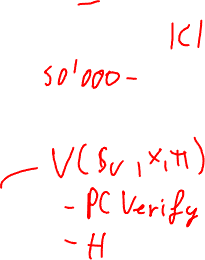 |C|
50'000-
V(Sv, x, π)
- PC Verify
- H